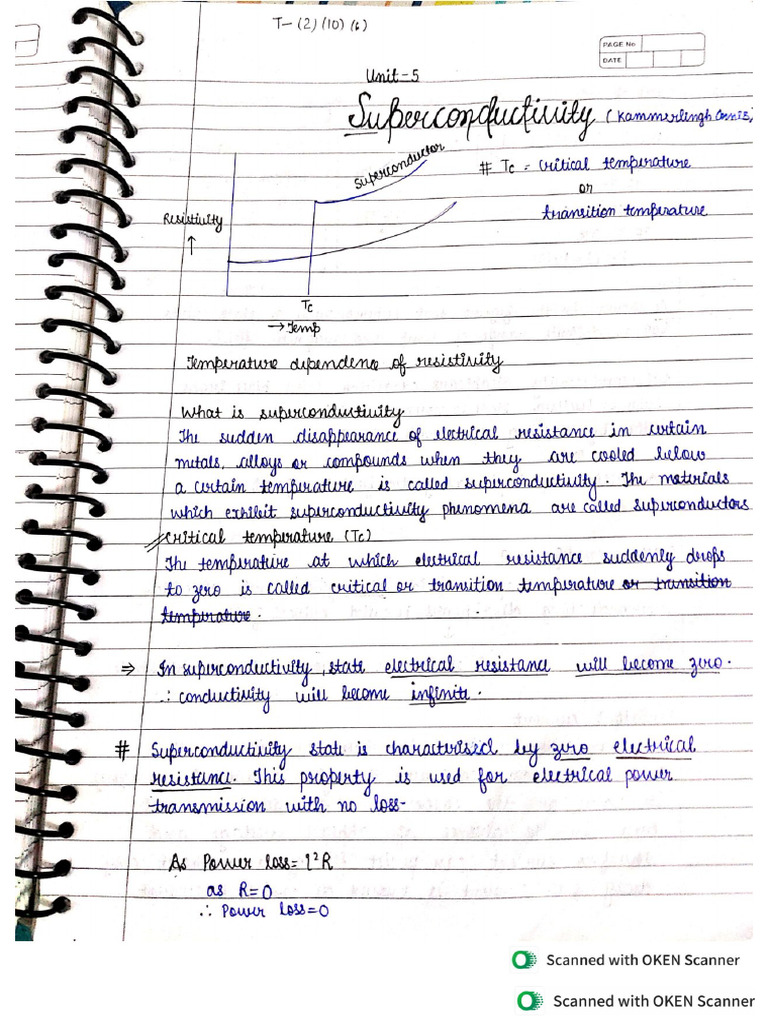 T- (2) (10) (6)
PAGE No
DATE
Unit-5
Superconductivity (Kammerlengh Onnis)
Superconductor
# Tc = Critical temperature
or
transition temperature
Resistivity
↑
Tc
→ Temp
Temperature dependence of resistivity
What is superconductivity
The sudden disappearance of electrical resistance in certain
metals, alloys or compounds when they are cooled below
a certain temperature is called superconductivity. The materials
which exhibit superconductivity phenomena are called superconductors
Critical temperature (Tc)
The temperature at which electrical resistance suddenly drops
to zero is called critical or transition temperature or transition
temperature.
⇒ In superconductivity state electrical resistance will become zero.
∴ conductivity will become infinite.
# Superconductivity state is characterised by zero electrical
resistance. This property is used for electrical power
transmission with no loss-
As Power loss= I²R
as R=0
∴ Power loss=0
Scanned with OKEN Scanner
Scanned with OKEN Scanner